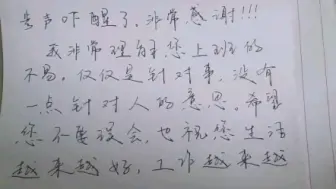 声吓醒了，非常感谢!!!
我非常理解您上班的
不易。仅仅是针对事，没有
一点针对人的意思。希望
您不要误会，也祝您生活
越来越好，工作越来越